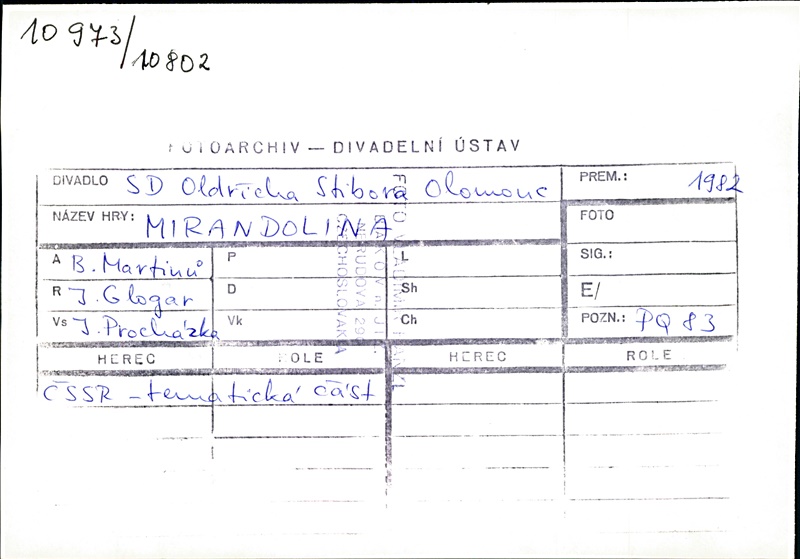 10 973/10802
FOTOARCHIV — DIVADELNÍ ÚSTAV
DIVADLO SD Oldřicha Stibora Olomouc
PREM.: 1982
NÁZEV HRY: MIRANDOLINA
FOTO
A B. Martinů
P
L
SIG.:
R J. Glogar
D
Sh
E/
Vs J. Procházka
Vk
Ch
POZN.: PQ 83
HEREC ROLE HEREC ROLE
ČSSR - tematická část
FOTO
NERUDOVA
ČECHOSLOVAKIA